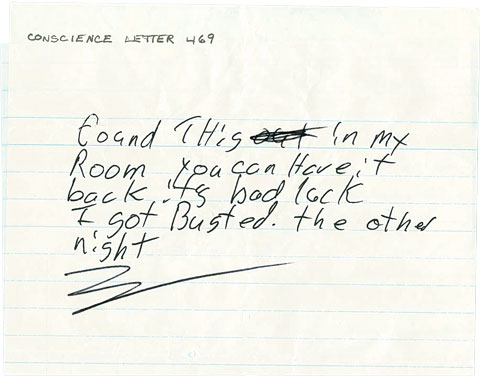 CONSCIENCE LETTER 469
found THis in my
Room you can Have it
back its bad luck
I got Busted. the other
night